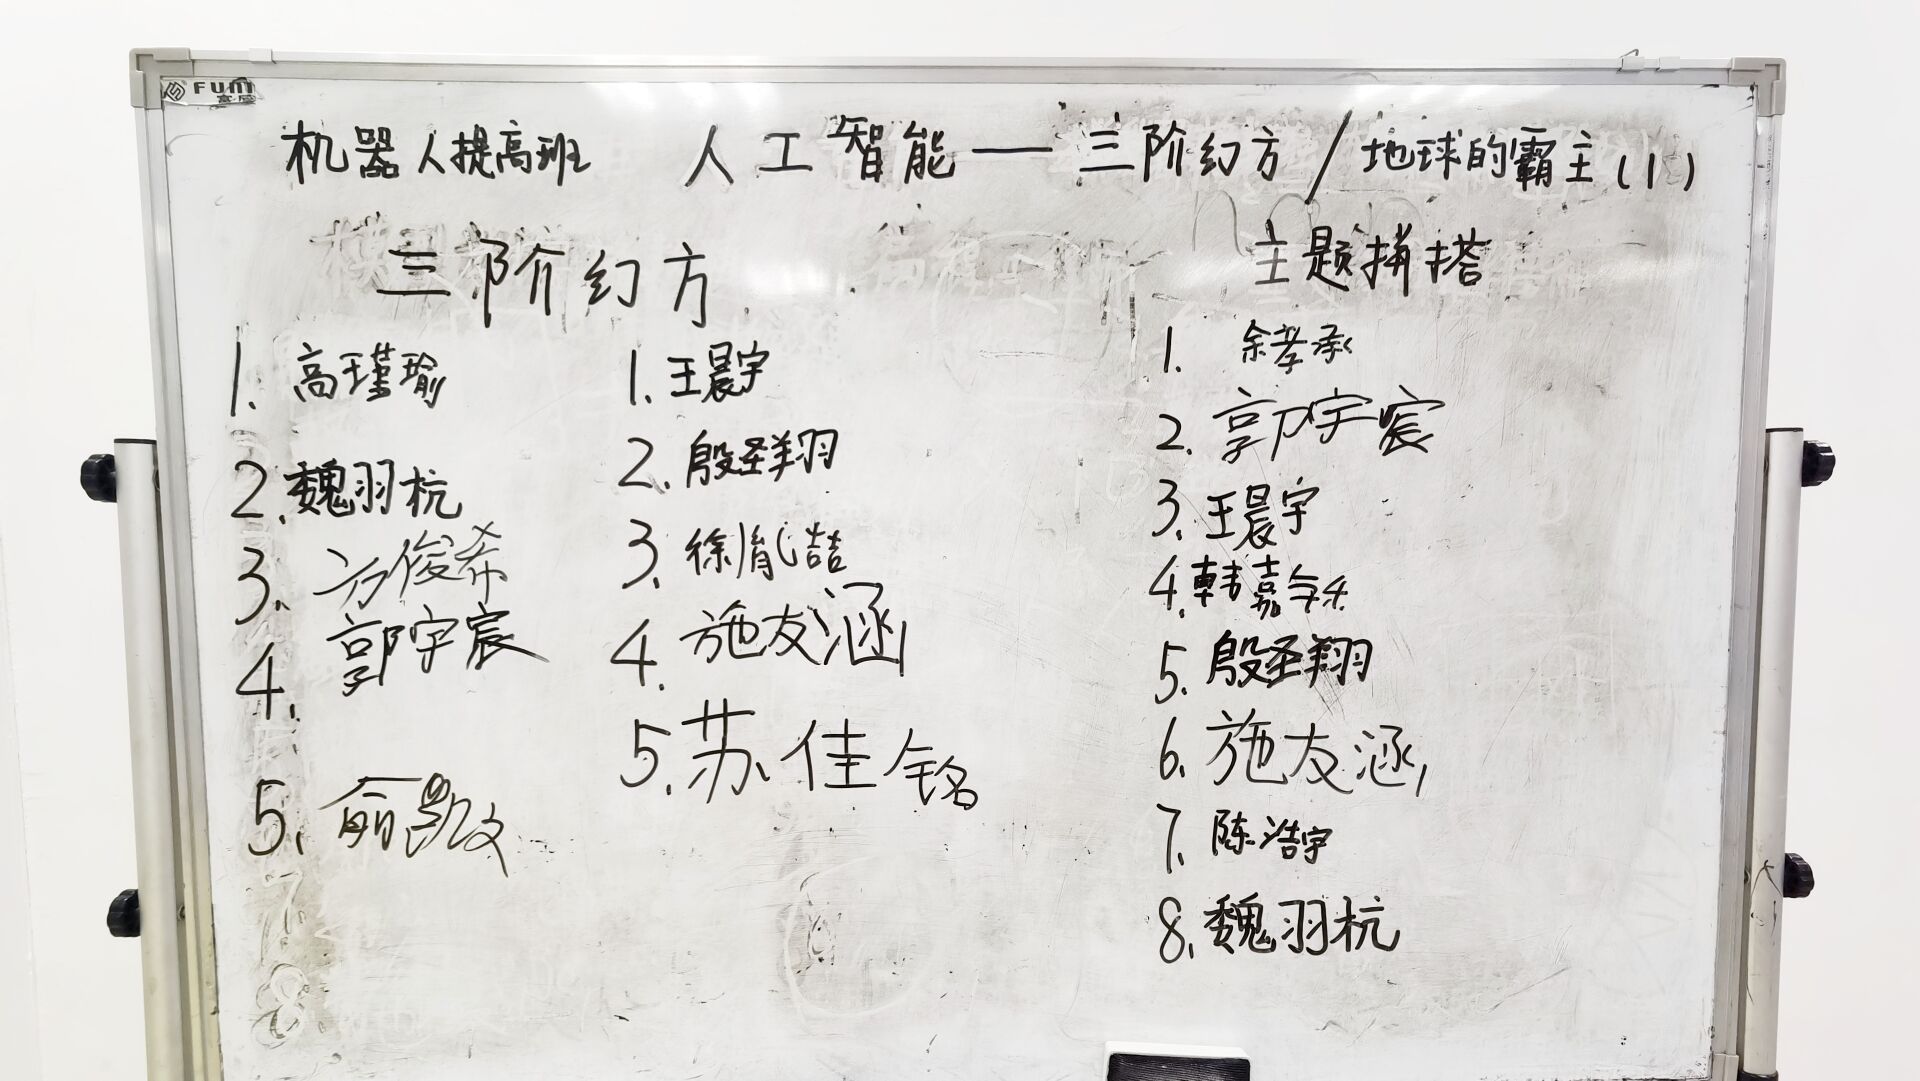 FUM
机器人提高班 人工智能——三阶幻方/地球的霸主(1)
三阶幻方
1. 高瑾瑜
2. 魏羽杭
3. 方俊希
4. 郭宇宸
5. 俞凯文
1. 王晨宇
2. 殷圣翔
3. 徐胤喆
4. 施友涵
5. 苏佳铭
主题拼搭
1. 余孝承
2. 郭宇宸
3. 王晨宇
4. 韩嘉
5. 殷圣翔
6. 施友涵
7. 陈浩宇
8. 魏羽杭